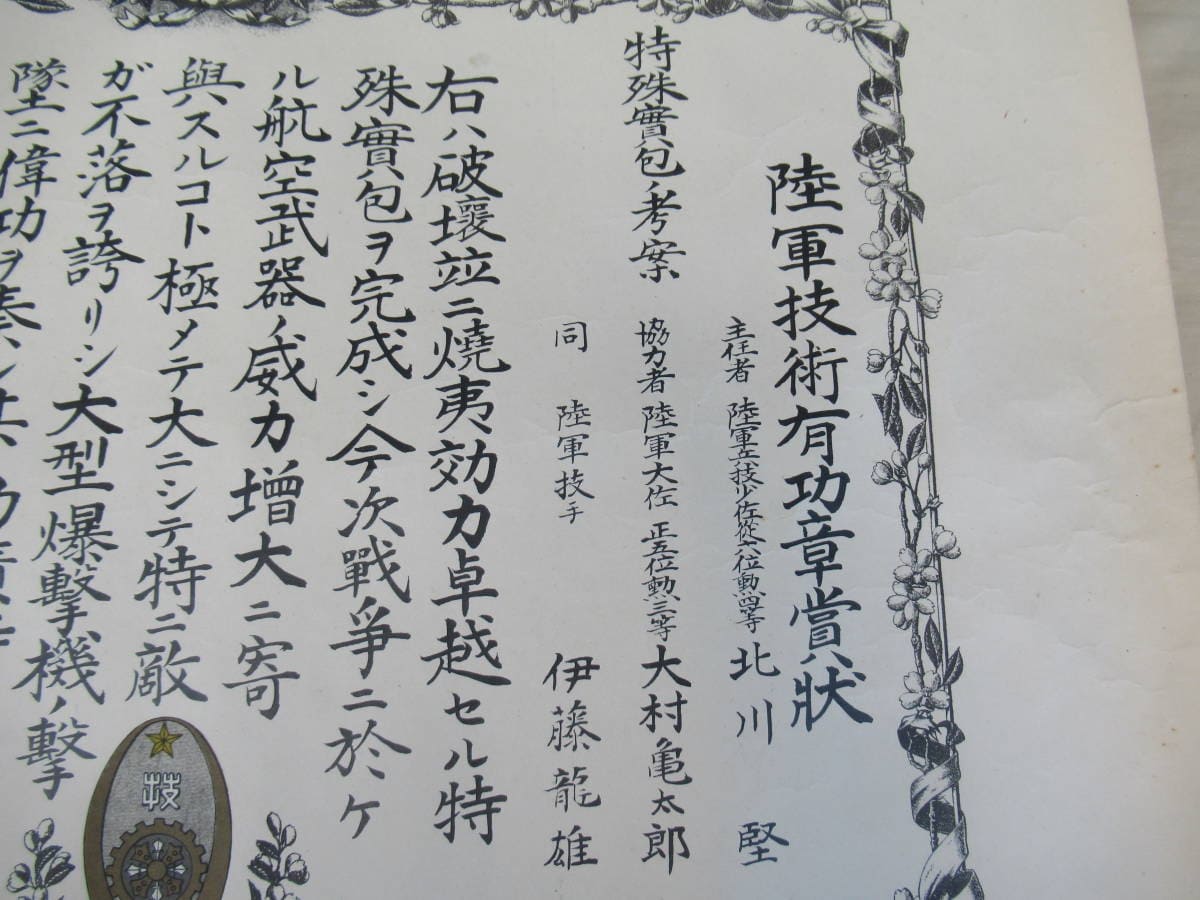 陸軍技術有功章賞狀
特殊實包ノ考案
主任者 陸軍兵技少佐從六位勳四等 北川 堅
協力者 陸軍大佐 正五位勳三等 大村亀太郎
同 陸軍技手 伊藤龍雄
右ハ破壞竝ニ燒夷効力卓越セル特
殊實包ヲ完成シ今次戰爭ニ於ケ
ル航空武器ノ威力增大ニ寄
與スルコト極メテ大ニシテ特ニ敵
ガ不落ヲ誇リシ大型爆擊機ノ擊
墜ニ偉功ヲ奏シ
技